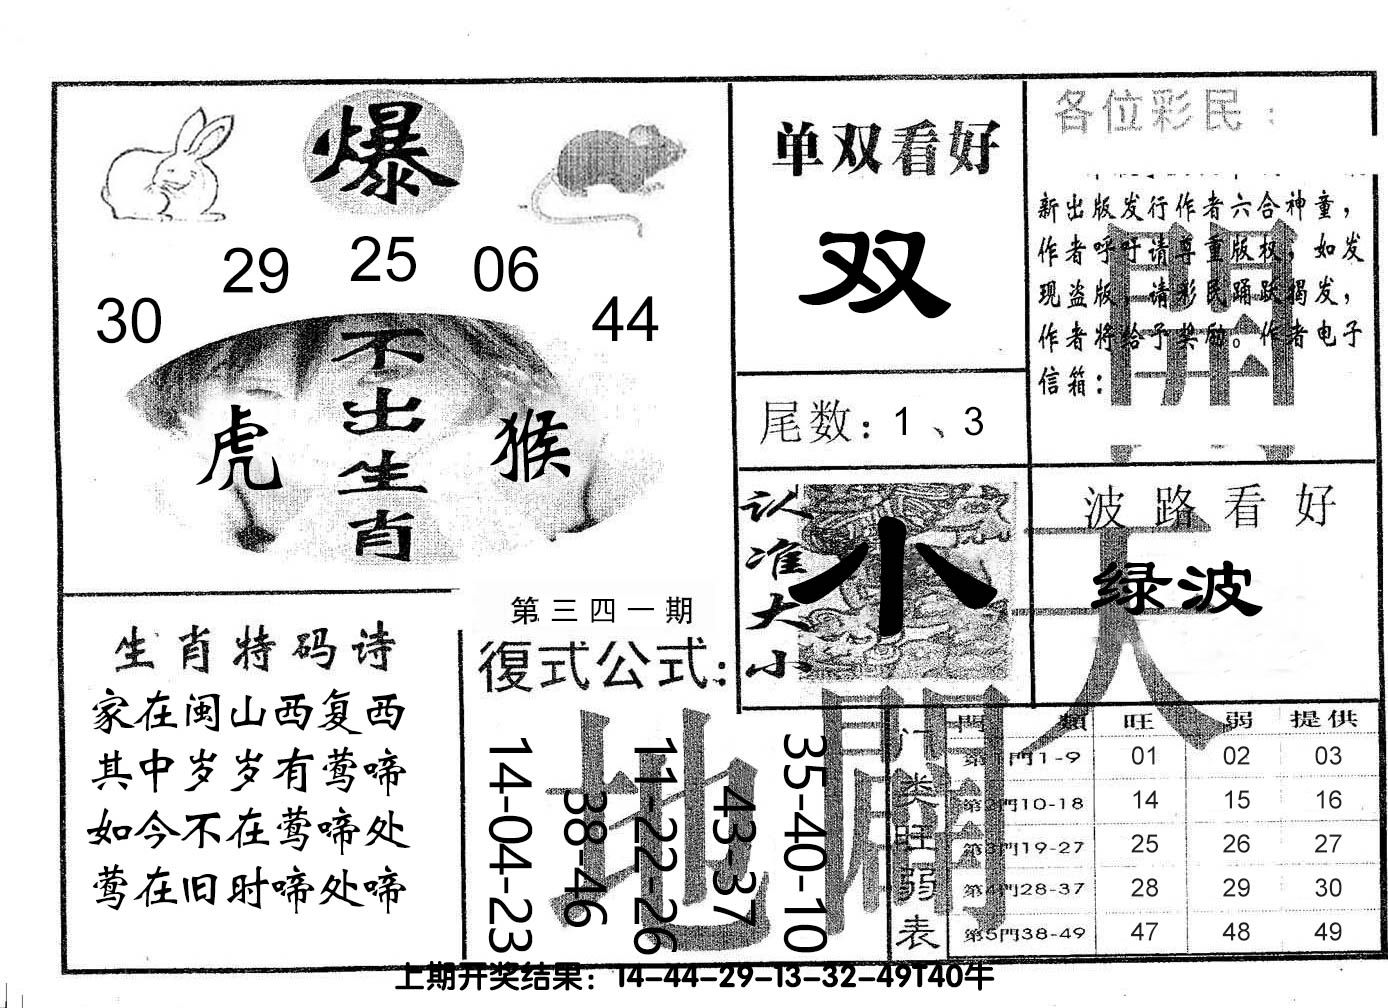 爆
30 29 25 06 44
不出生肖
虎 猴
单双看好
双
尾数：1、3
各位彩民：
新出版发行作者六合神童，
作者呼吁请尊重版权，如发
现盗版，请彩民踊跃揭发，
作者将给予奖励。作者电子
信箱：
認准大小
小
波路看好
绿波
天開地闢
生肖特码诗
家在闽山西复西
其中岁岁有莺啼
如今不在莺啼处
莺在旧时啼处啼
第三四一期
復式公式：
14-04-23
38-46
11-22-26
43-37
35-40-10
门类旺弱表
門類 旺 弱 提供
第1門1-9 01 02 03
第2門10-18 14 15 16
第3門19-27 25 26 27
第4門28-37 28 29 30
第5門38-49 47 48 49
上期开奖结果：14-44-29-13-32-49T40牛